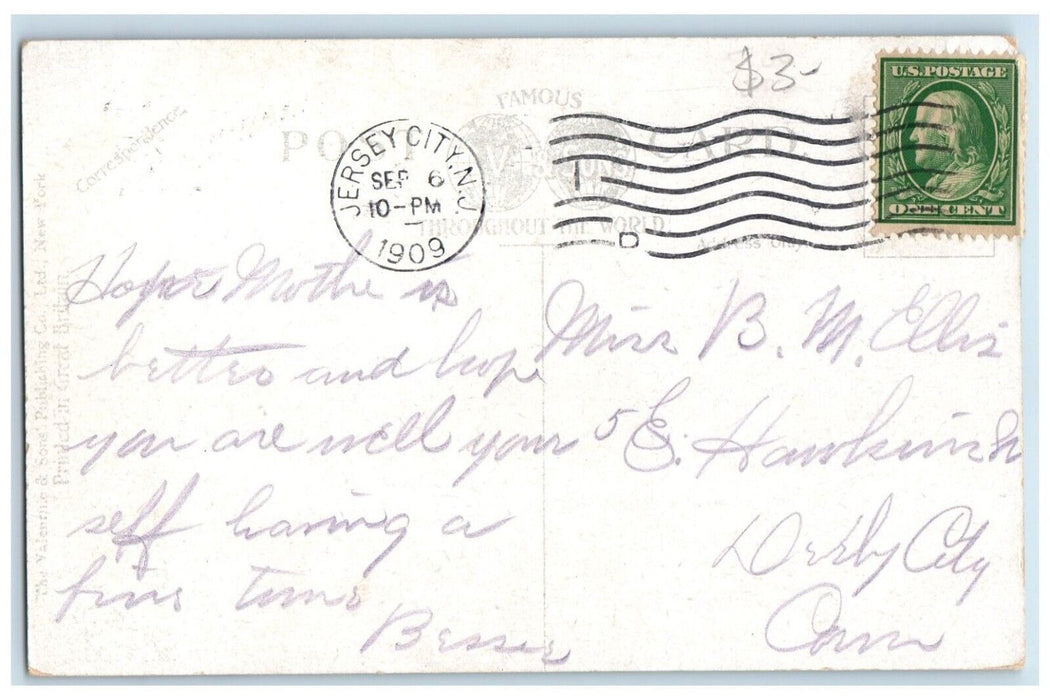 $3-
U.S. POSTAGE
ONE CENT
FAMOUS
POST CARD
THROUGHOUT THE WORLD
Address Only
JERSEY CITY, N.J.
SEP 6
10-PM
1909
D
Correspondence
The Valentine & Sons' Publishing Co. Ltd., New York
Printed in Great Britain
Hope Mothe is
better and hope
you are well your
self having a
fine time
Bessie
Miss B. M. Ellis
5 E. Hawkins
Derby City
Conn